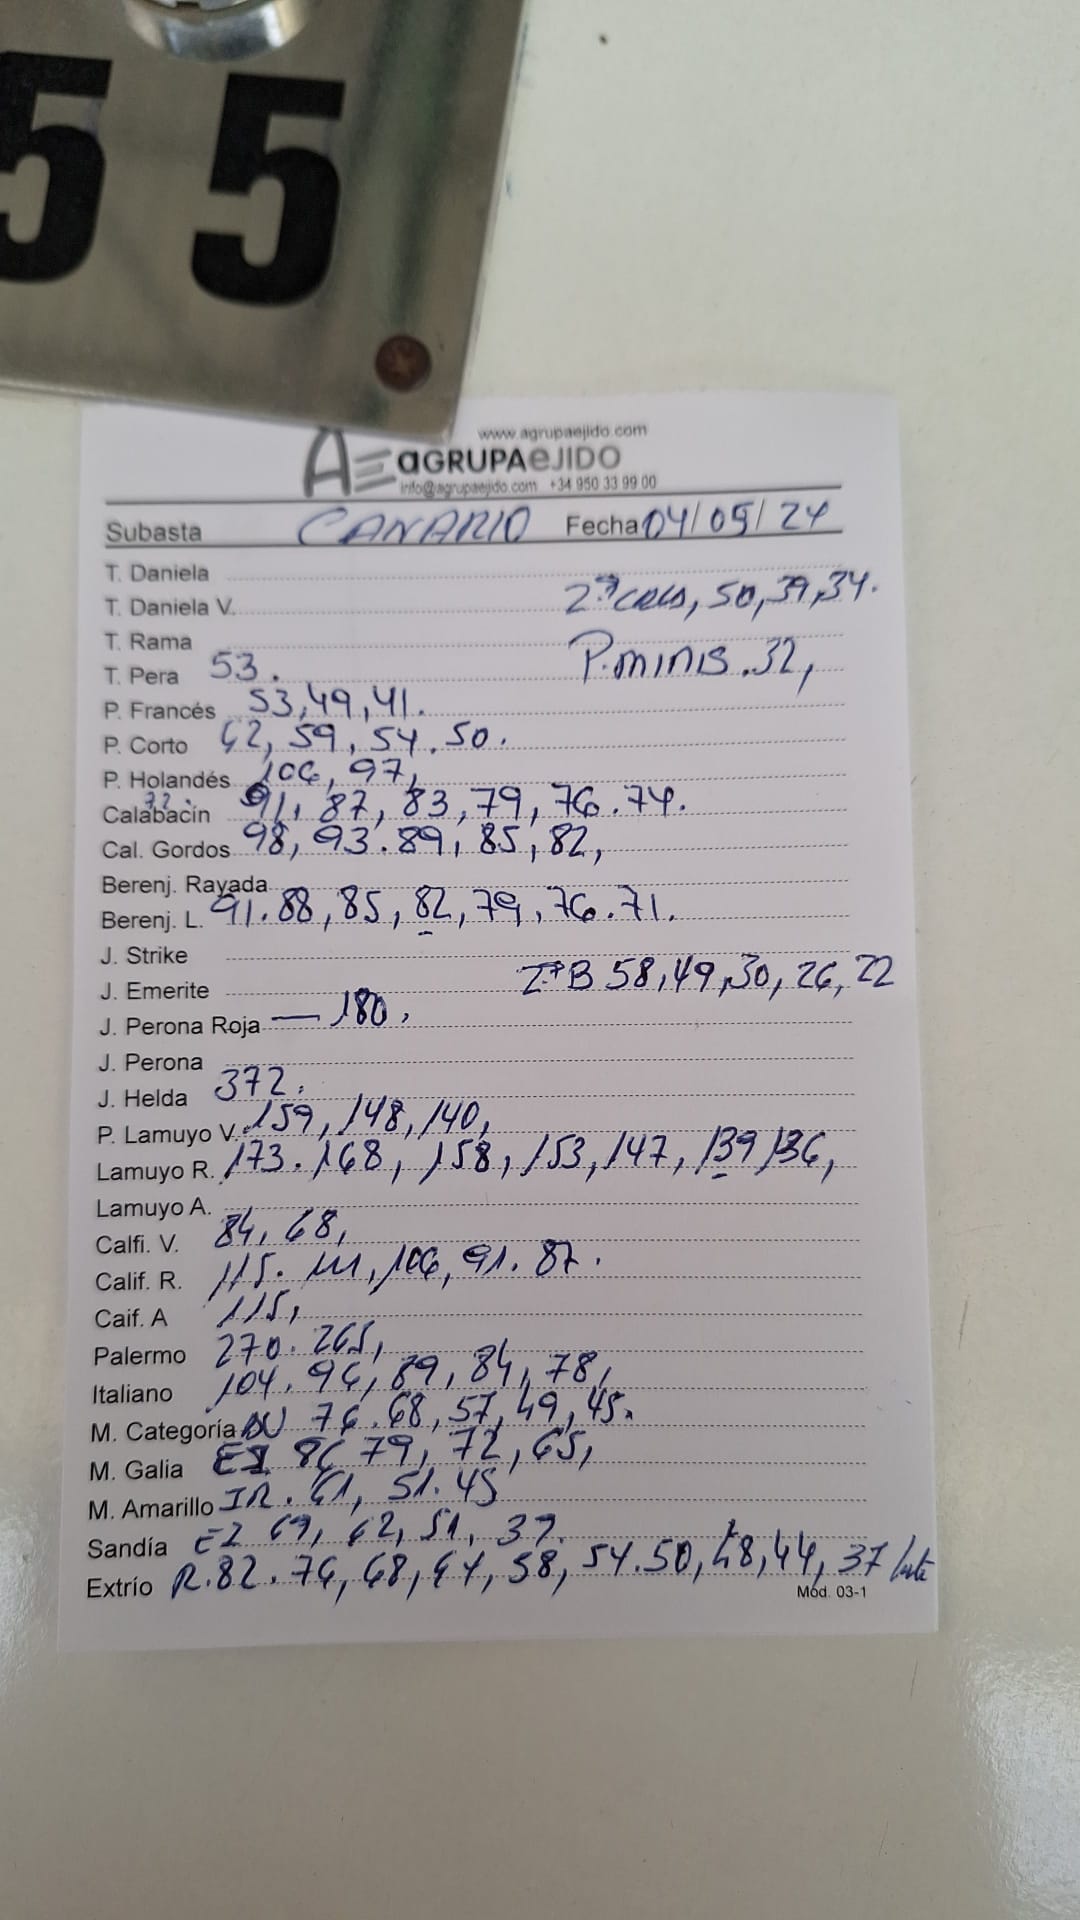 55
www.agrupaejido.com
AGRUPAEJIDO
info@agrupaejido.com +34 950 33 99 00
Subasta CANARIO Fecha 04/09/24
T. Daniela
T. Daniela V. 50, 39, 34.
T. Rama
T. Pera 53. P. MINIS. 32,
P. Francés 53, 49, 41.
P. Corto 62, 59, 54. 50.
P. Holandés 106, 97,
72.
Calabacín 91, 87, 83, 79, 76. 74.
Cal. Gordos 98, 93. 89, 85, 82,
Berenj. Rayada
Berenj. L. 91. 88, 85, 82, 79, 76. 71.
J. Strike
J. Emerite 2ªB 58, 49, 30, 26, 22
J. Perona Roja — 180,
J. Perona
J. Helda 372.
P. Lamuyo V. 159, 148, 140,
Lamuyo R. 173. 168, 158, 153, 147, 139 136,
Lamuyo A.
Calfi. V. 84, 68,
Calif. R. 115. 111, 106, 91. 87.
Caif. A 115,
Palermo 270. 265,
Italiano 104. 96, 89, 84, 78,
M. Categoría 76. 68, 57, 49, 45.
M. Galia 86 79, 72, 65,
M. Amarillo IR. 61, 51. 45
Sandía EZ 69, 62, 51, 37.
Extrío R. 82. 76, 68, 64, 58, 54. 50, 48, 44, 37
Mód. 03-1